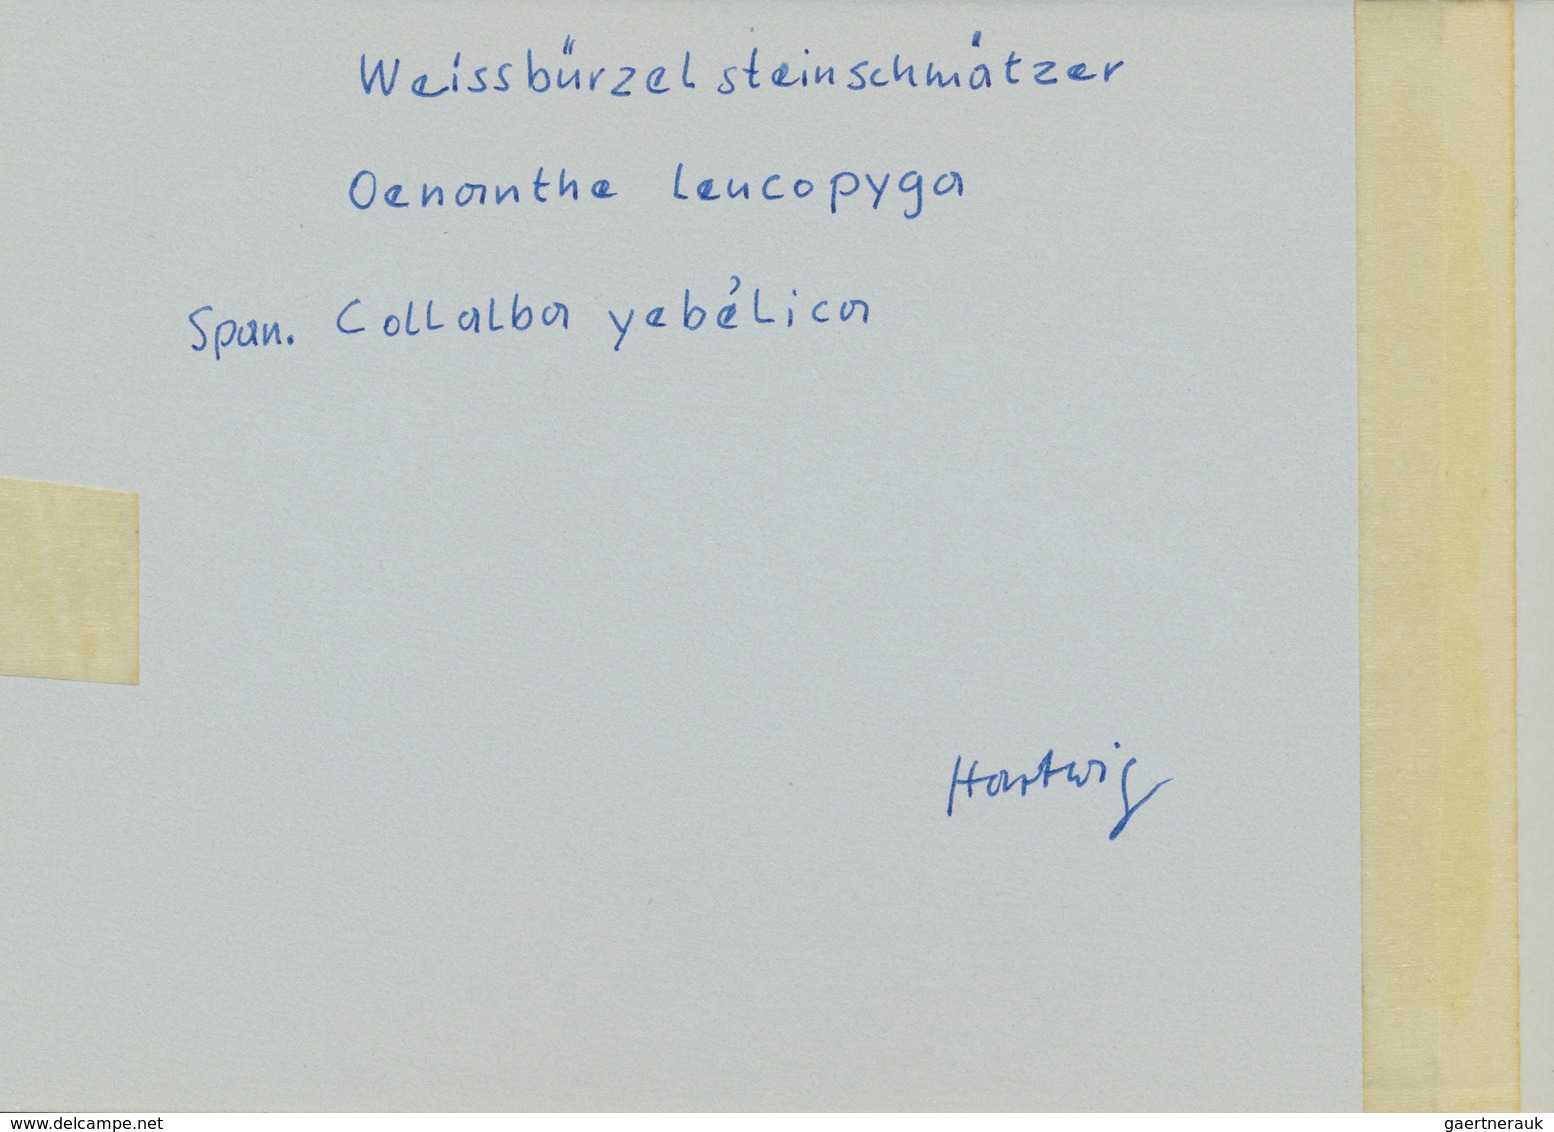 Weissbürzelsteinschmätzer
Oenanthe leucopyga
Span. Collalba yebélica
Hartwig
www.delcampe.net
gaertnerauk